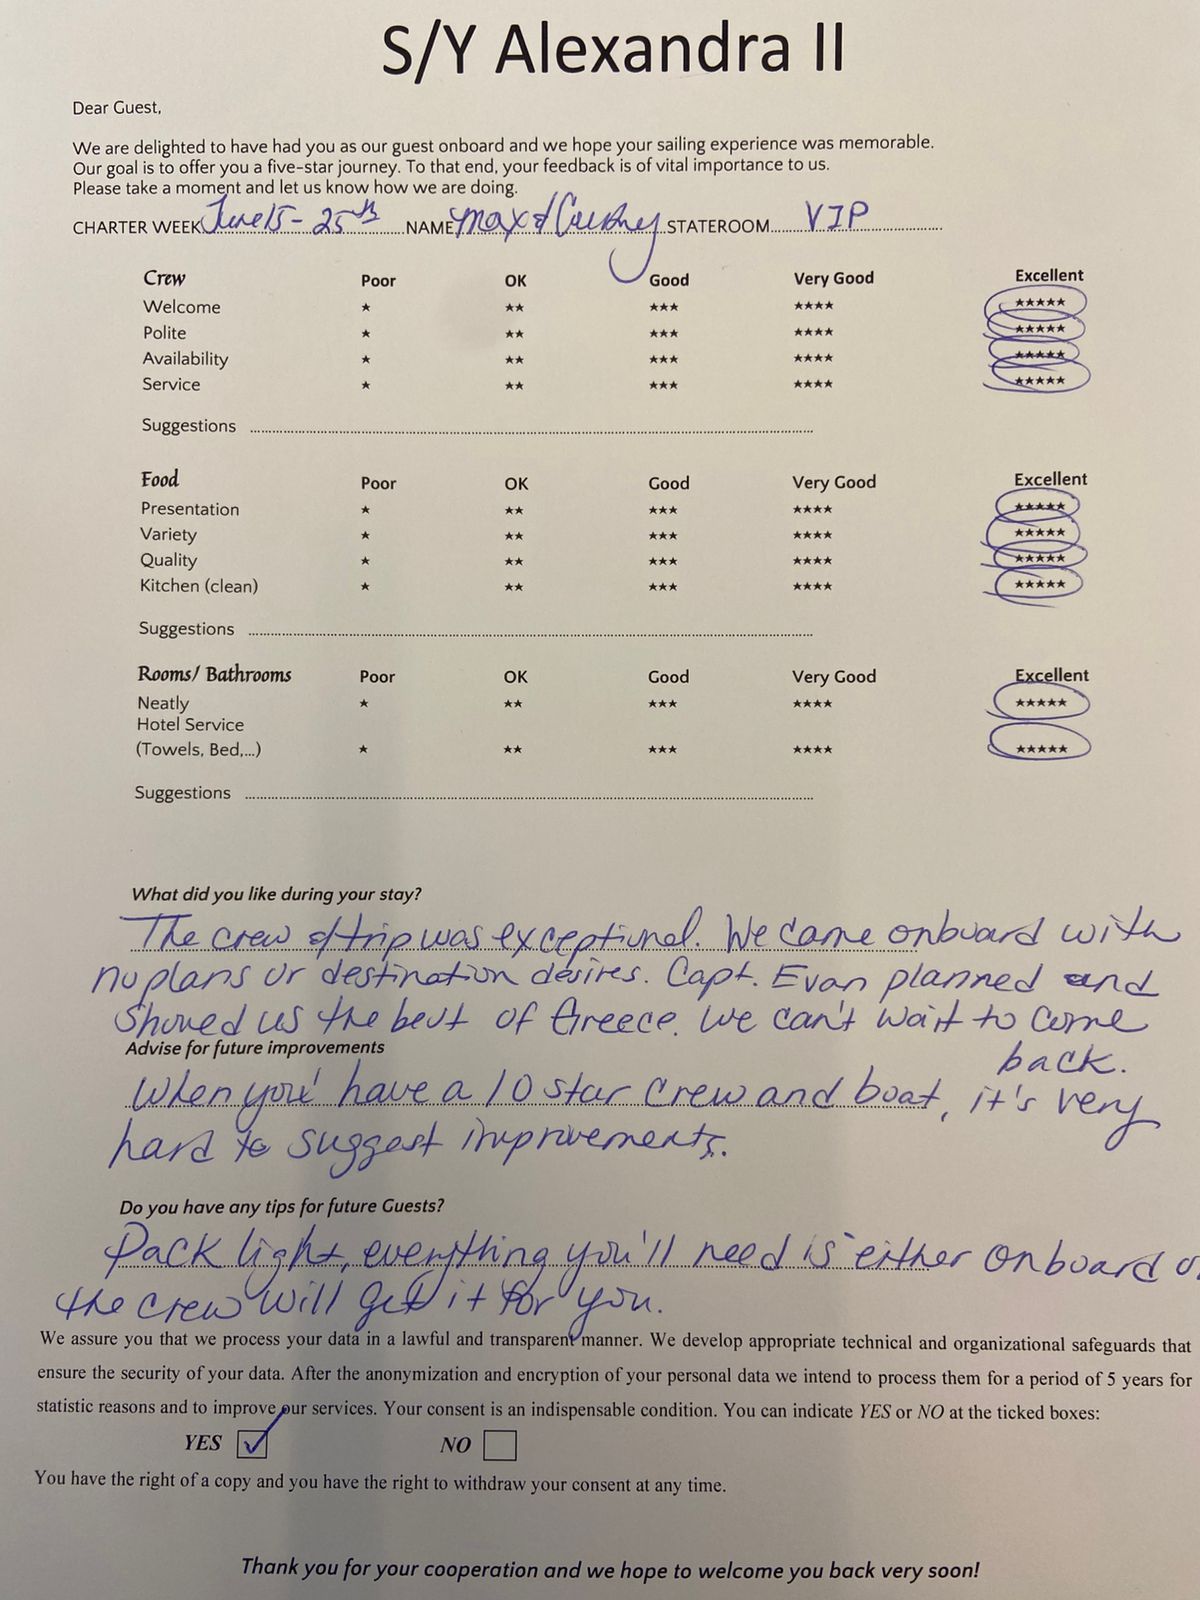 S/Y Alexandra II
Dear Guest,
We are delighted to have had you as our guest onboard and we hope your sailing experience was memorable.
Our goal is to offer you a five-star journey. To that end, your feedback is of vital importance to us.
Please take a moment and let us know how we are doing.
CHARTER WEEK June 15 - 25th NAME Max & STATEROOM VIP
Crew Poor OK Good Very Good Excellent
Welcome ★ ★★ ★★★ ★★★★ ★★★★★
Polite ★ ★★ ★★★ ★★★★ ★★★★★
Availability ★ ★★ ★★★ ★★★★ ★★★★★
Service ★ ★★ ★★★ ★★★★ ★★★★★
Suggestions
Food Poor OK Good Very Good Excellent
Presentation ★ ★★ ★★★ ★★★★ ★★★★★
Variety ★ ★★ ★★★ ★★★★ ★★★★★
Quality ★ ★★ ★★★ ★★★★ ★★★★★
Kitchen (clean) ★ ★★ ★★★ ★★★★ ★★★★★
Suggestions
Rooms/ Bathrooms Poor OK Good Very Good Excellent
Neatly ★ ★★ ★★★ ★★★★ ★★★★★
Hotel Service
(Towels, Bed,...) ★ ★★ ★★★ ★★★★ ★★★★★
Suggestions
What did you like during your stay?
The crew & trip was exceptional. We came onboard with
no plans or destination desires. Capt. Evan planned and
showed us the best of Greece. We can't wait to come
back.
Advise for future improvements
When you have a 10 star crew and boat, it's very
hard to suggest improvements.
Do you have any tips for future Guests?
Pack light, everything you'll need is either onboard or
the crew will get it for you.
We assure you that we process your data in a lawful and transparent manner. We develop appropriate technical and organizational safeguards that
ensure the security of your data. After the anonymization and encryption of your personal data we intend to process them for a period of 5 years for
statistic reasons and to improve our services. Your consent is an indispensable condition. You can indicate YES or NO at the ticked boxes:
YES ☑ NO ☐
You have the right of a copy and you have the right to withdraw your consent at any time.
Thank you for your cooperation and we hope to welcome you back very soon!